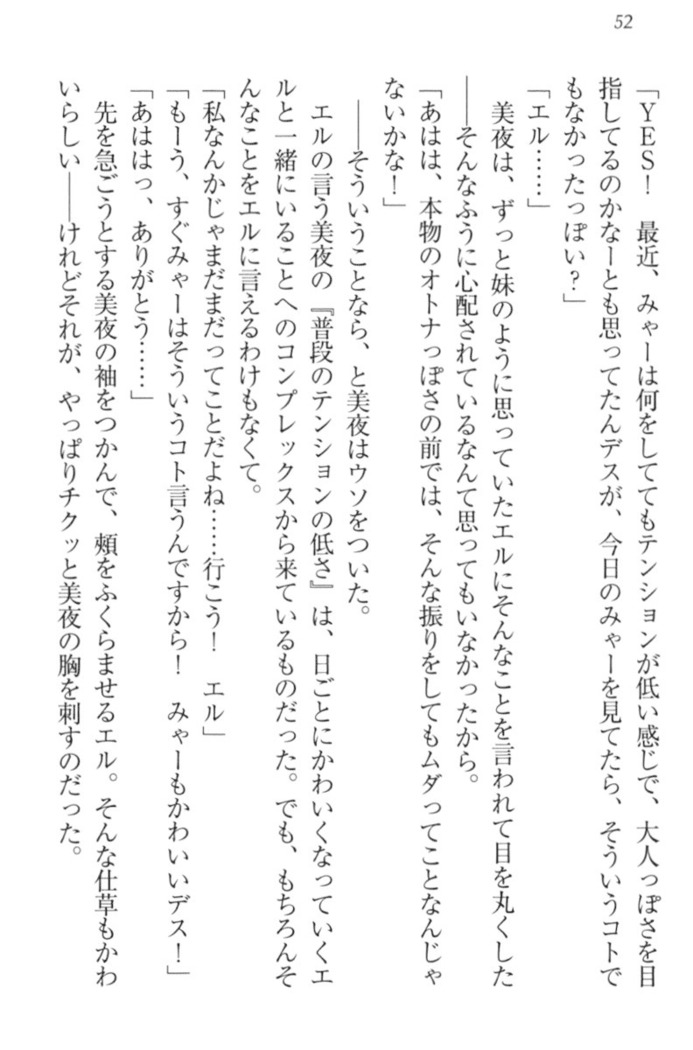 52
「YES！　最近、みゃーは何をしててもテンションが低い感じで、大人っぽさを目
指してるのかなーとも思ってたんデスが、今日のみゃーを見てたら、そういうコトで
もなかったっぽい？」
「エル……」
　美夜は、ずっと妹のように思っていたエルにそんなことを言われて目を丸くした
――そんなふうに心配されているなんて思ってもいなかったから。
「あはは、本物のオトナっぽさの前では、そんな振りをしてもムダってことなんじゃ
ないかな！」
　――そういうことなら、と美夜はウソをついた。
　エルの言う美夜の『普段のテンションの低さ』は、日ごとにかわいくなっていくエ
ルと一緒にいることへのコンプレックスから来ているものだった。でも、もちろんそ
んなことをエルに言えるわけもなくて。
「私なんかじゃまだまだってことだよね……行こう！　エル」
「もーう、すぐみゃーはそういうコト言うんですから！　みゃーもかわいいデス！」
「あははっ、ありがとう……」
　先を急ごうとする美夜の袖をつかんで、頰をふくらませるエル。そんな仕草もかわ
いらしい――けれどそれが、やっぱりチクッと美夜の胸を刺すのだった。